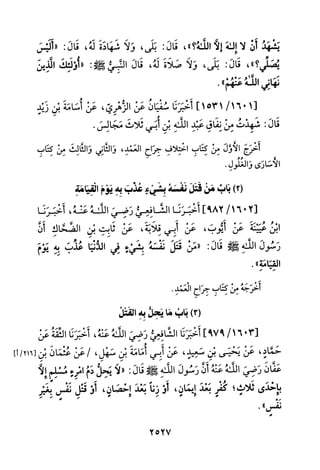 يَشْهَدُ أَنْ لا إِلٰهَ إِلاَّ اللَّهُ؟»، قَالَ: بَلَى، وَلاَ شَهَادَةَ لَهُ، قَالَ: «أَلَيْسَ
يُصَلِّي؟»، قَالَ: بَلَى، وَلاَ صَلاَةَ لَهُ، قَالَ النَّبِيُّ ﷺ: «أُولَئِكَ الَّذِينَ
نَهَانِي اللَّهُ عَنْهُمْ».
[١٥٣١/١٦٠١] أَخْبَرَنَا سُفْيَانُ عَنْ الزُّهْرِيِّ، عَنْ أُسَامَةَ بْنِ زَيْدٍ
قَالَ: شَهِدْتُ مِنْ نِفَاقِ عَبْدِ اللَّهِ بْنِ أُبَيٍّ ثَلاثَ مَجَالِسَ.
أَخْرَجَ الأَوَّلَ مِنْ كِتَابِ اخْتِلافِ جِرَاحِ العَمْدِ، وَالثَّانِي وَالثَّالِثَ مِنْ كِتَابِ
الأَسَارَى وَالغُلُولِ.
(٢) بَابُ مَنْ قَتَلَ نَفْسَهُ بِشَيْءٍ عُذِّبَ بِهِ يَوْمَ القِيَامَةِ
[٩٨٢/١٦٠٢] أَخْبَرَنَا الشَّافِعِيُّ رَضِيَ اللَّهُ عَنْهُ، أَخْبَرَنَا
ابْنُ عُيَيْنَةَ عَنْ أَيُّوبَ، عَنْ أَبِي قِلاَبَةَ، عَنْ ثَابِتِ بْنِ الضَّحَّاكِ أَنَّ
رَسُولَ اللَّهِ ﷺ قَالَ: «مَنْ قَتَلَ نَفْسَهُ بِشَيْءٍ فِي الدُّنْيَا عُذِّبَ بِهِ يَوْمَ
القِيَامَةِ».
أَخْرَجَهُ مِنْ كِتَابِ جِرَاحِ الْعَمْدِ.
(٣) بَابُ مَا يَحِلُّ بِهِ القَتْلُ
[٩٧٩/١٦٠٣] أَخْبَرَنَا الشَّافِعِيُّ رَضِيَ اللَّهُ عَنْهُ، أَخْبَرَنَا الثِّقَةُ عَنْ
حَمَّادٍ، عَنْ يَحْيَى بْنِ سَعِيدٍ، عَنْ أَبِي أُمَامَةَ بْنِ سَهْلٍ، / عَنْ عُثْمَانَ بْنِ [٢١٦/أ]
عَفَّانَ رَضِيَ اللَّهُ عَنْهُ أَنَّ رَسُولَ اللَّهِ ﷺ قَالَ: «لاَ يَحِلُّ دَمُ امْرِءٍ مُسْلِمٍ إِلاَّ
بِإِحْدَى ثَلاثٍ؛ كُفْرٍ بَعْدَ إِيمَانٍ، أَوْ زِناً بَعْدَ إِحْصَانٍ، أَوْ قَتْلِ نَفْسٍ بِغَيْرِ
نَفْسٍ».
٢٥٢٧